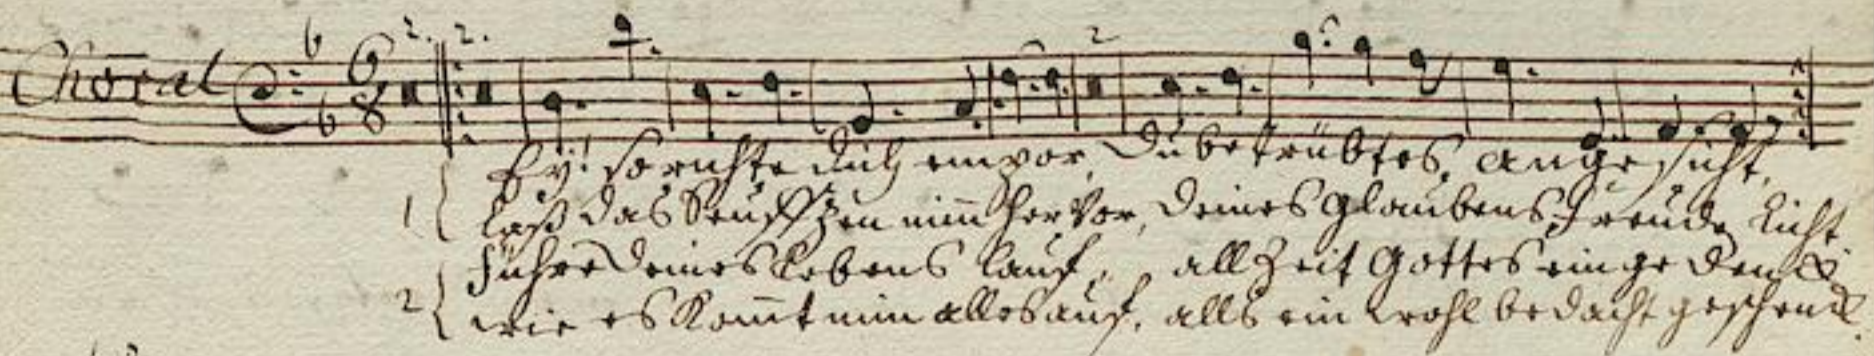 Choral
6 8 2. 2. 2
Ey! so richte dich empor, du betrübtes angesicht,
1 Laß das Seufftzen nim̄ hervor, deines Glaubens Freuden Licht
Führe deines Lebens lauf, allzeit Gottes eingedenck
2 wie es Kom̄t nim̄ alles auf, alls ein wohl bedacht geschenck.